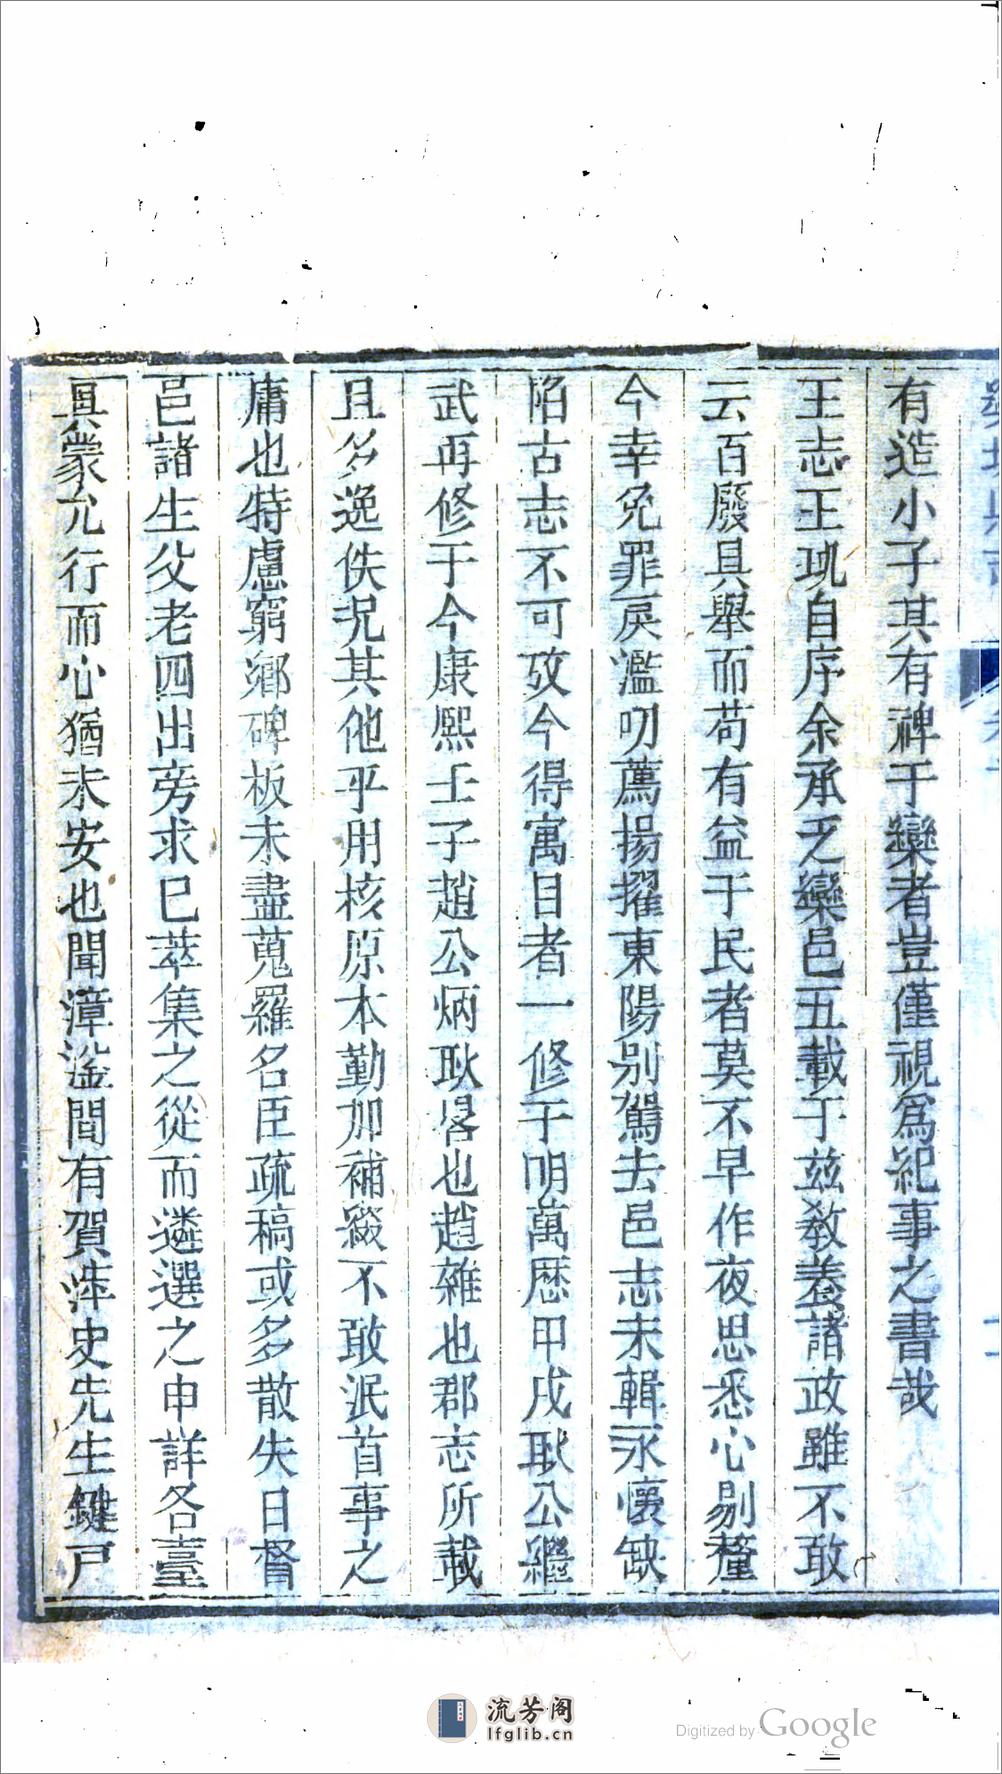 有造小子其有裨于欒者豈僅視爲紀事之書哉
王志王玑自序余承乏欒邑五載于兹教養諸政雖不敢
云百廢具舉而苟有益于民者莫不早作夜思悉心剔釐
今幸免罪戾濫叨薦揚擢東陽别駕去邑志未輯永懷缺
陷古志不可攷今得寓目者一修于明萬歷甲戌耿公繼
武再修于今康熙壬子趙公炳耿畧也趙雜也郡志所載
且多逸佚况其他乎用核原本勤加補綴不敢泯首事之
庸也特慮窮鄉碑板未盡蒐羅名臣疏稿或多散失日督
邑諸生父老四出旁求巳萃集之從而遴選之申詳各臺
具蒙允行而心猶未安也聞漳滏間有賀泮史先生鍵戸
流芳阁
lfglib.cn
Digitized by Google